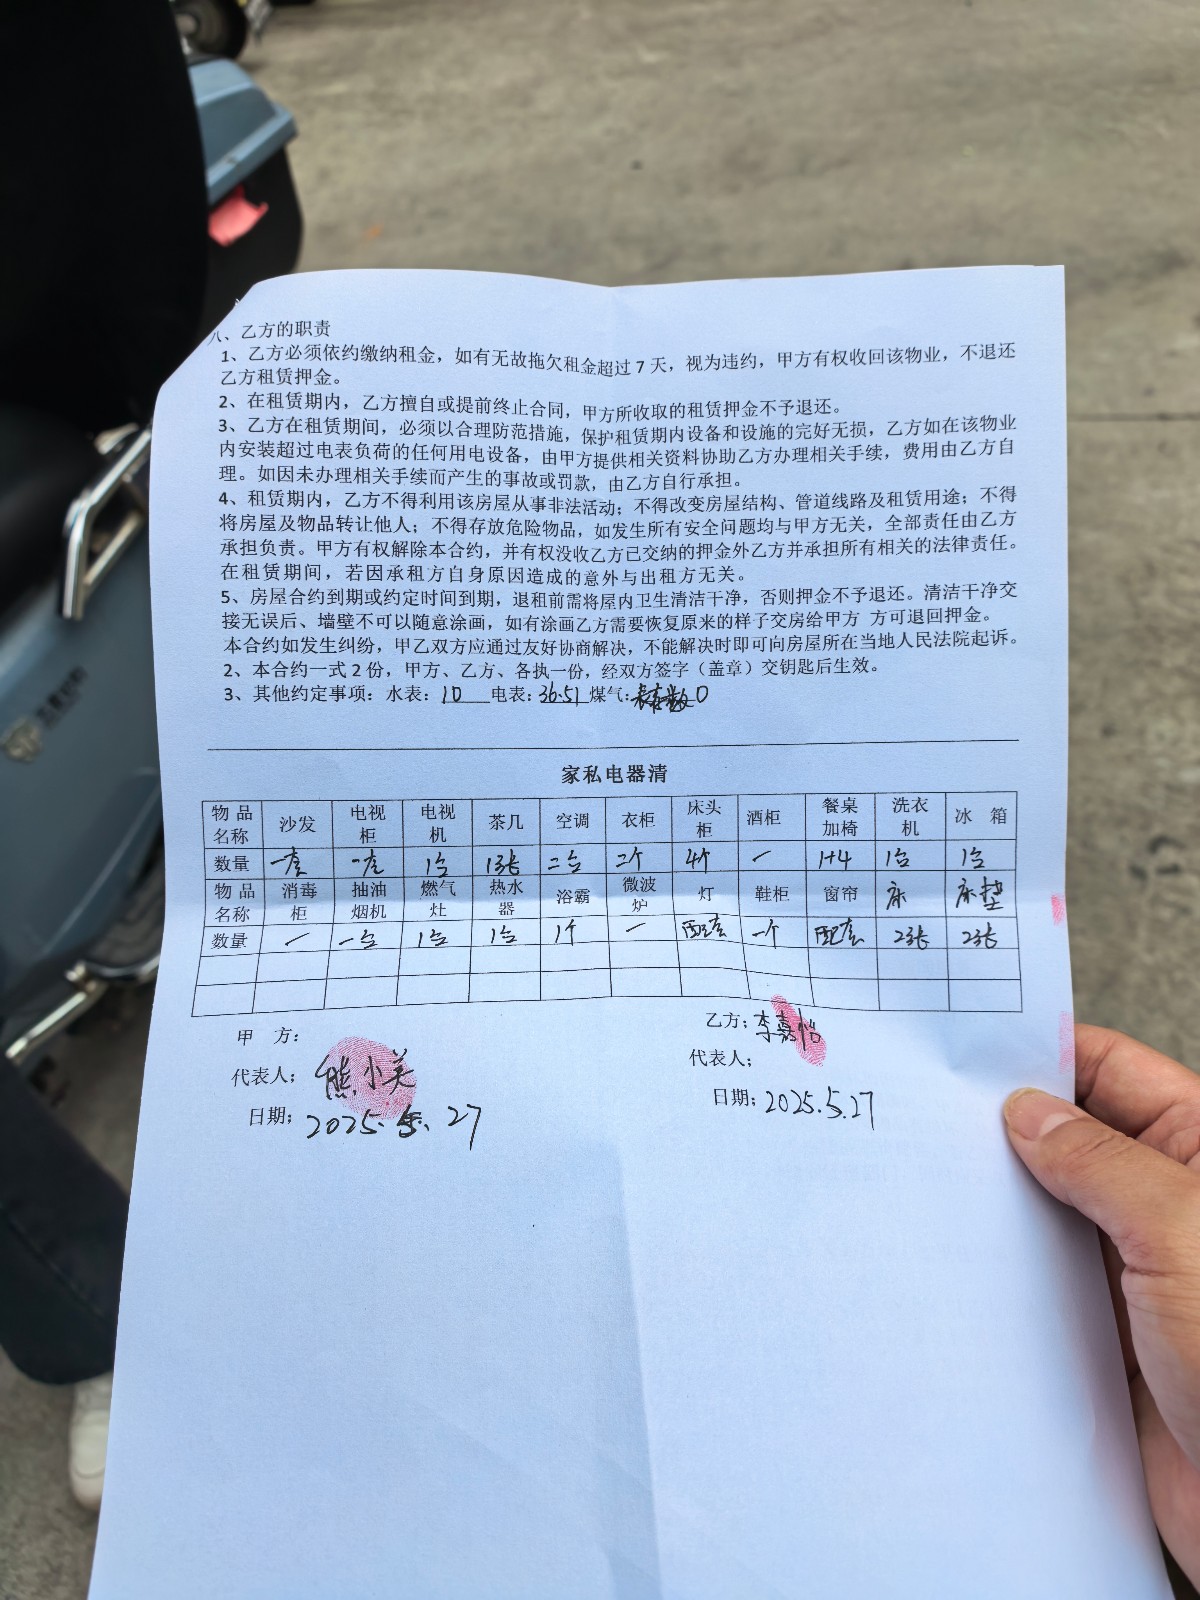 八、乙方的职责
1、乙方必须依约缴纳租金，如有无故拖欠租金超过7天，视为违约，甲方有权收回该物业，不退还
乙方租赁押金。
2、在租赁期内，乙方擅自或提前终止合同，甲方所收取的租赁押金不予退还。
3、乙方在租赁期间，必须以合理防范措施，保护租赁期内设备和设施的完好无损，乙方如在该物业
内安装超过电表负荷的任何用电设备，由甲方提供相关资料协助乙方办理相关手续，费用由乙方自
理。如因未办理相关手续而产生的事故或罚款，由乙方自行承担。
4、租赁期内，乙方不得利用该房屋从事非法活动；不得改变房屋结构、管道线路及租赁用途；不得
将房屋及物品转让他人；不得存放危险物品，如发生所有安全问题均与甲方无关，全部责任由乙方
承担负责。甲方有权解除本合约，并有权没收乙方已交纳的押金外乙方并承担所有相关的法律责任。
在租赁期间，若因承租方自身原因造成的意外与出租方无关。
5、房屋合约到期或约定时间到期，退租前需将屋内卫生清洁干净，否则押金不予退还。清洁干净交
接无误后、墙壁不可以随意涂画，如有涂画乙方需要恢复原来的样子交房给甲方 方可退回押金。
本合约如发生纠纷，甲乙双方应通过友好协商解决，不能解决时即可向房屋所在当地人民法院起诉。
2、本合约一式2份，甲方、乙方、各执一份，经双方签字（盖章）交钥匙后生效。
3、其他约定事项：水表：10 电表：3651 煤气： 0
家私电器清
物品名称 沙发 电视柜 电视机 茶几 空调 衣柜 床头柜 酒柜 餐桌加椅 洗衣机 冰 箱
数量 一套 一套 1台 1张 二台 二个 4个 一 1+4 1台 1台
物品名称 消毒柜 抽油烟机 燃气灶 热水器 浴霸 微波炉 灯 鞋柜 窗帘 床 床垫
数量 一 一台 1台 1台 1个 一 配套 一个 配套 2张 2张
甲 方： 乙方；李嘉怡
代表人；熊小美 代表人；
日期；2025.5.27 日期；2025.5.27